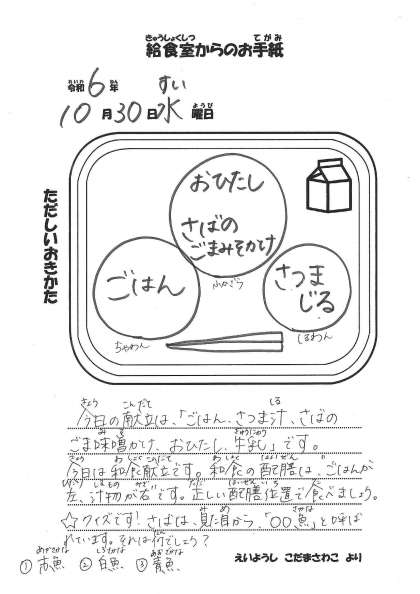 きゅうしょくしつ てがみ
給食室からのお手紙
れいわ ねん
令和6年 すい
10月30日水曜日
ようび
ただしいおきかた
おひたし
さばの
ごまみそかけ
ごはん
さつま
じる
ふかざら
ちゃわん
しるわん
きょう こんだて しる
今日の献立は、「ごはん、さつま汁、さばの
みそ ぎゅうにゅう
ごま味噌かけ、おひたし、牛乳」です。
きょう わしょくこんだて わしょく はいぜん
今日は和食献立です。和食の配膳は、ごはんが
ひだり しるもの みぎ ただ はいぜんいち た
左、汁物が右です。正しい配膳位置で食べましょう。
みため さかな よ
☆クイズです!さばは、見た目から、「〇〇魚」と呼ば
なん
れています。それは何でしょう?
あかざかな しろざかな あおざかな
①赤魚 ②白魚 ③青魚
えいようし こだまさわこ より